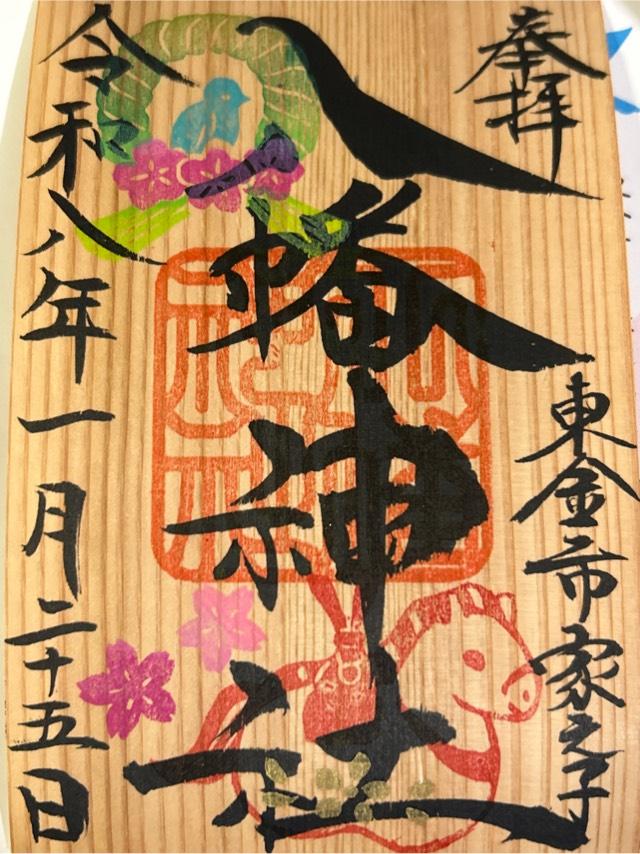 奉拝
東金市家之子
八幡神社
令和八年一月二十五日